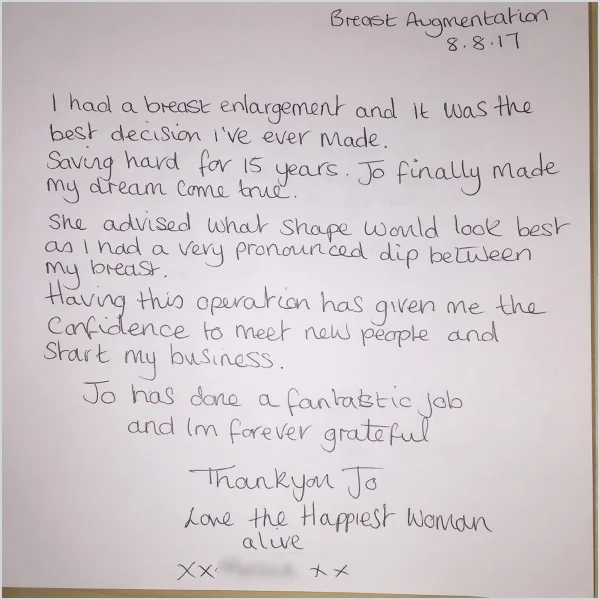 Breast Augmentation
8.8.17
I had a breast enlargement and it was the
best decision I've ever made.
Saving hard for 15 years. Jo finally made
my dream come true.
She advised what shape would look best
as I had a very pronounced dip between
my breast.
Having this operation has given me the
confidence to meet new people and
start my business.
Jo has done a fantastic job
and Im forever grateful
Thankyou Jo
Love the Happiest Woman
alive
xx. xx